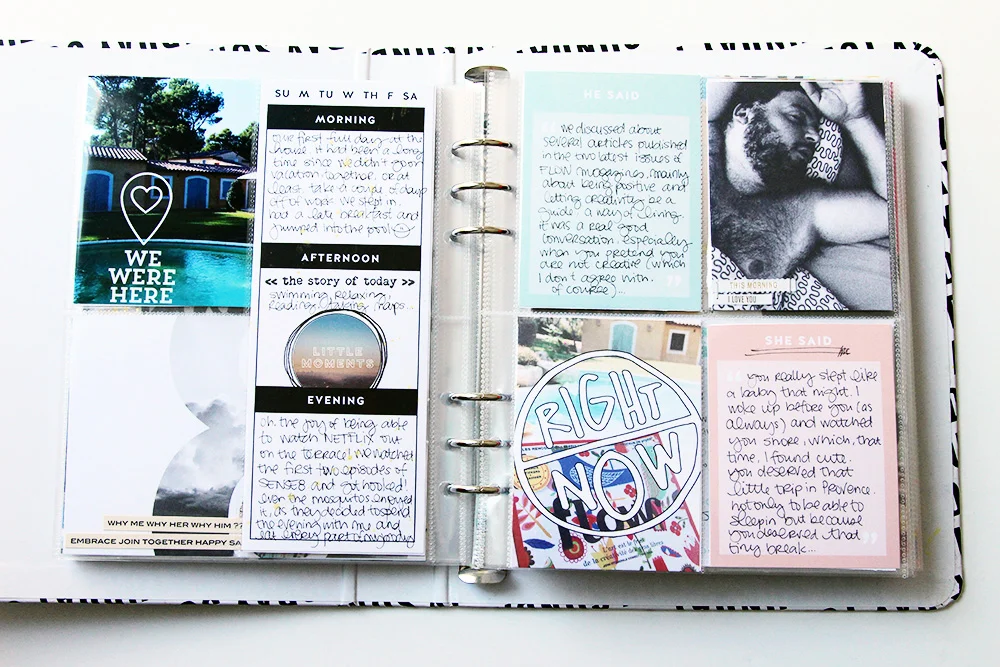 WE
WERE
HERE
SU M TU W TH F SA
MORNING
our first full day at the
house. it had been a long
time since we didn't go on
vacation together. or at
least take a couple of days
off of work. we slept in.
had a late breakfast and
jumped into the pool
AFTERNOON
<< the story of today >>
swimming, relaxing,
reading, taking naps...
LITTLE
MOMENTS
EVENING
oh, the joy of being able
to watch NETFLIX out
on the terrace! we watched
the first two episodes of
SENSE8 and got hooked!
even the mosquitos enjoyed
it, as they decided to spend
the evening with me and
eat every part of my body
WHY ME WHY HER WHY HIM ??
EMBRACE JOIN TOGETHER HAPPY SA
HE SAID
we discussed about
several articles published
in the two latest issues of
FLOW magazines, mainly
about being positive and
letting creativity be a
guide, a way of living.
it was a real good
conversation. especially
when you pretend you
are not creative (which
I don't agree with.
of course)...
THIS MORNING
I LOVE YOU
RIGHT
NOW
L'art est le
de la créativité
SHE SAID
you really slept like
a baby that night. I
woke up before you (as
always) and watched
you snore, which, that
time, I found cute.
you deserved that
little trip in Provence.
not only to be able to
sleep in but because
you deserved that
tiny break...